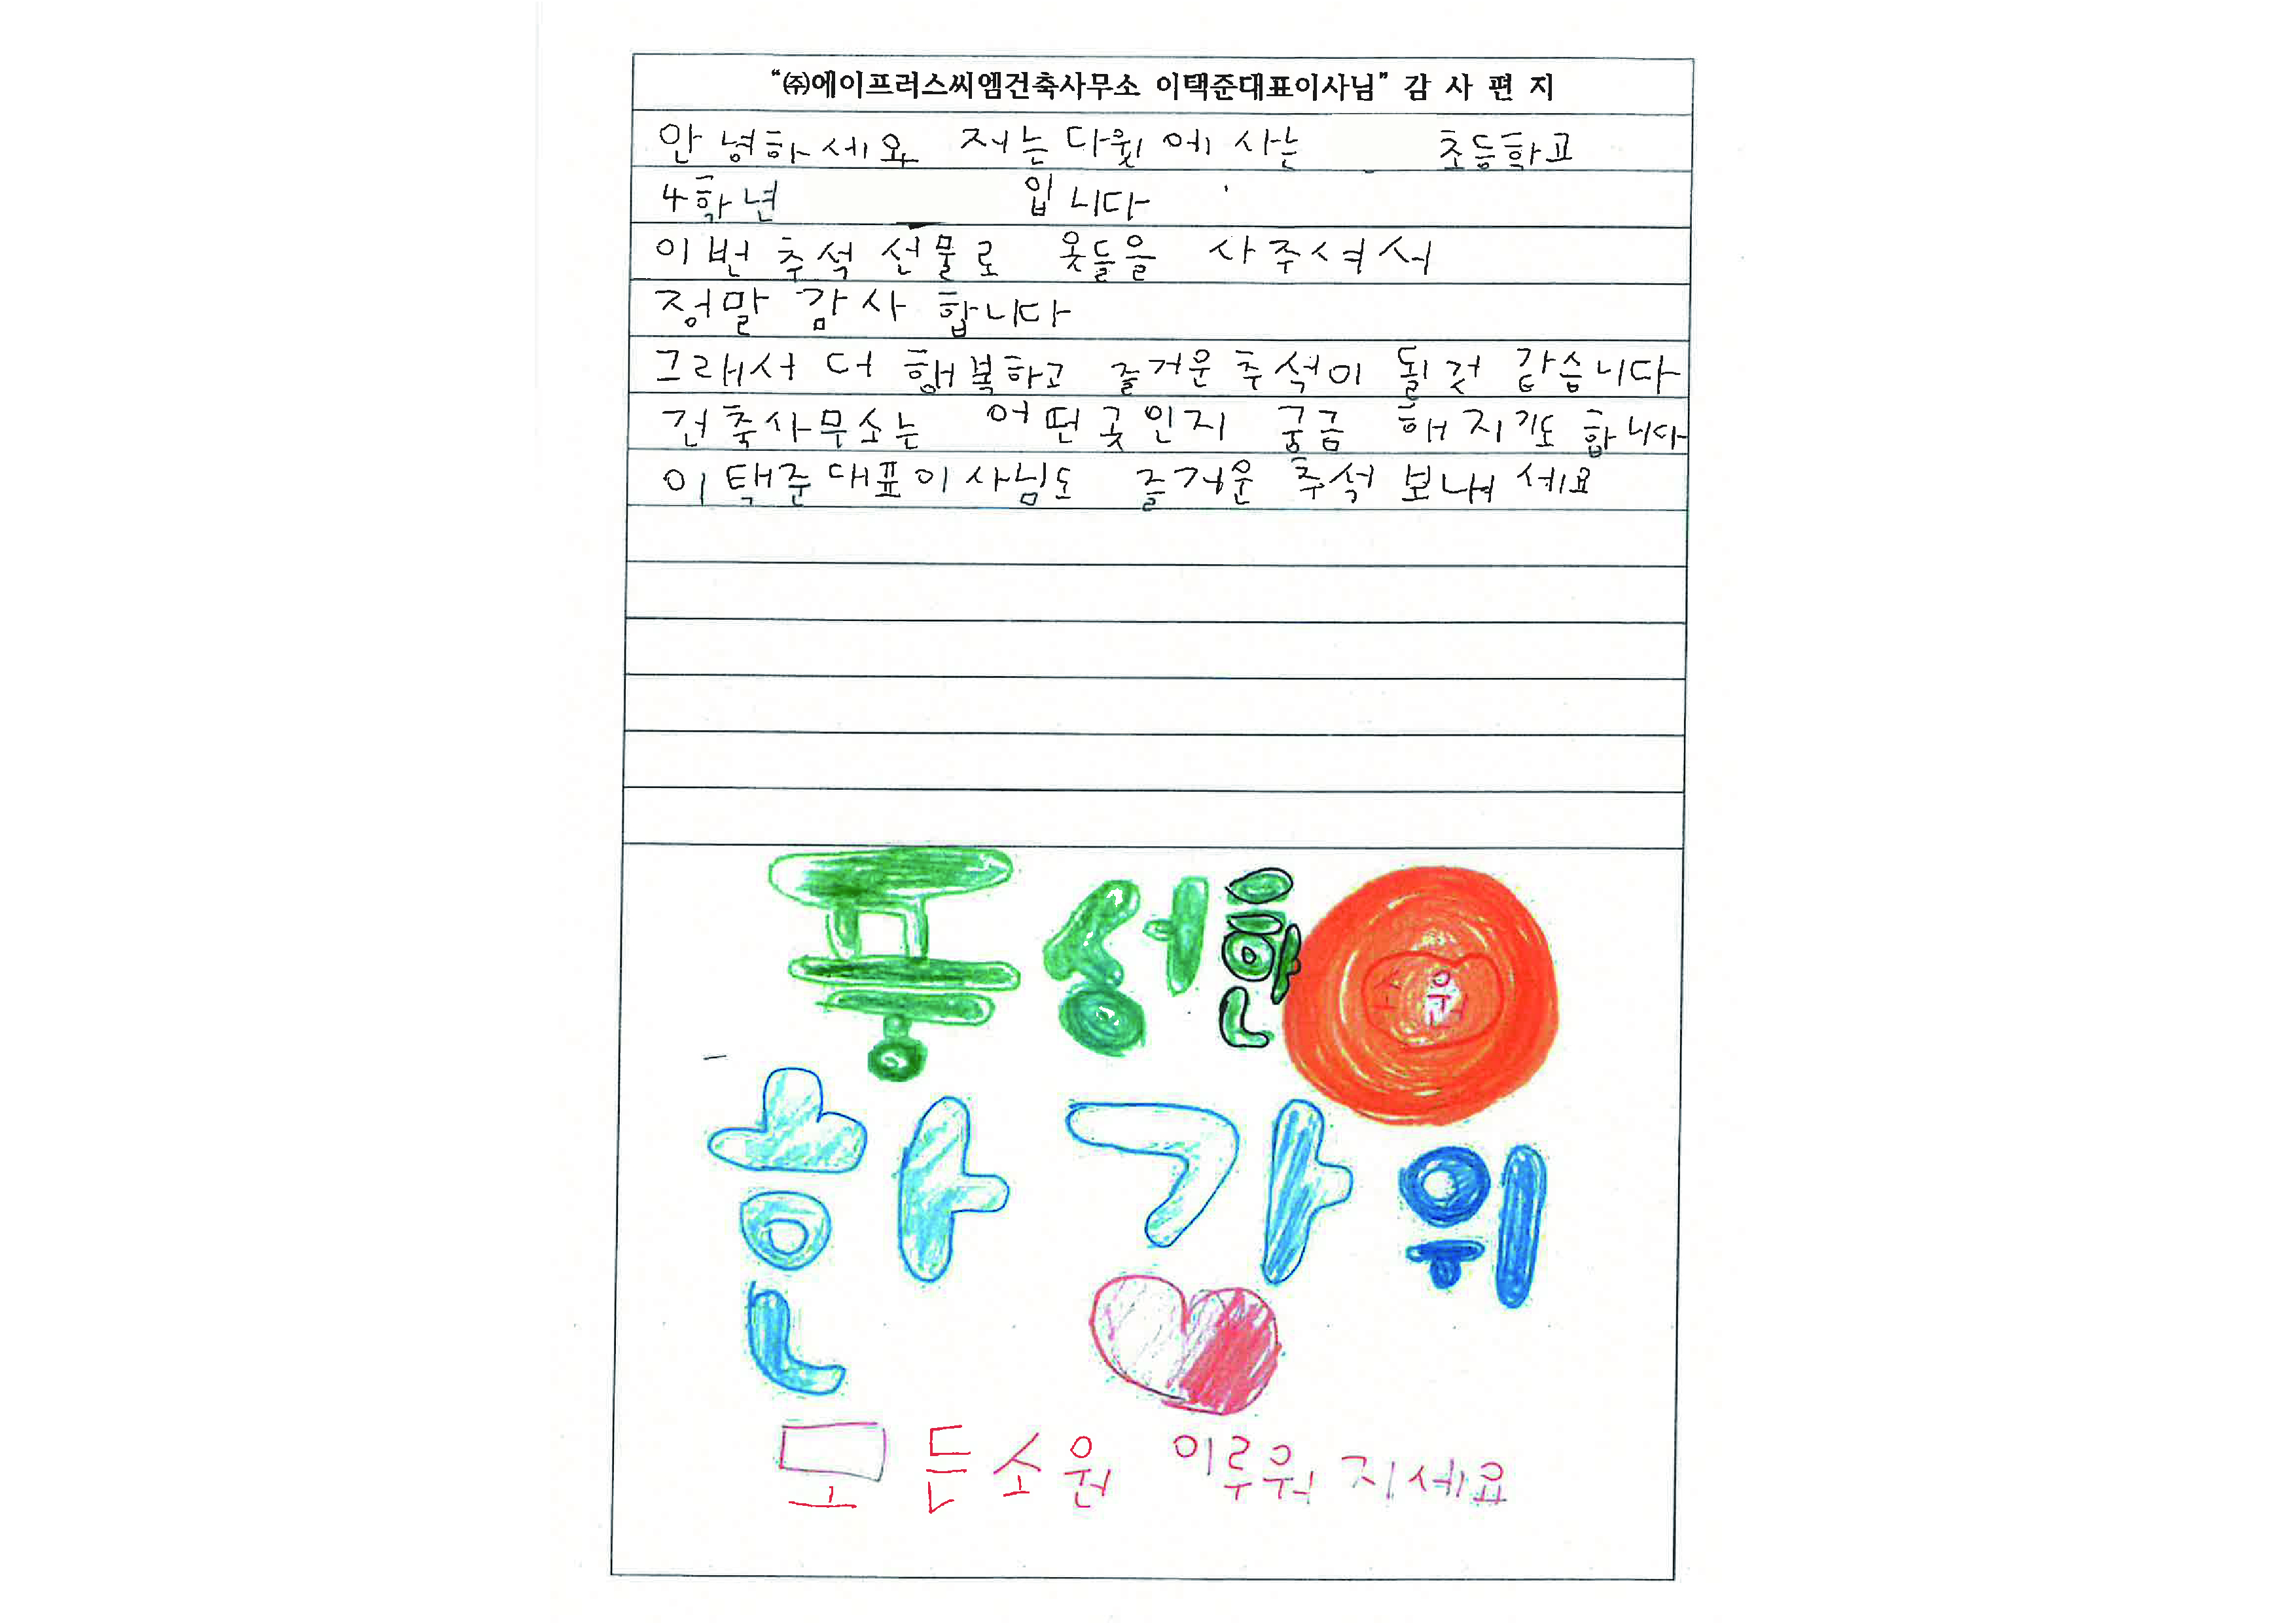 “㈜에이프러스씨엠건축사무소 이택준대표이사님” 감 사 편 지
안녕하세요 저는 다윗에 사는 초등학교
4학년 입니다
이번 추석 선물로 옷들을 사주셔서
정말 감사 합니다
그래서 더 행복하고 즐거운 추석이 될것 같습니다
건축사무소는 어떤 곳인지 궁금 해지기도 합니다
이택준대표이사님도 즐거운 추석 보내세요
풍성한
소원
한가위
모든소원 이루워지세요